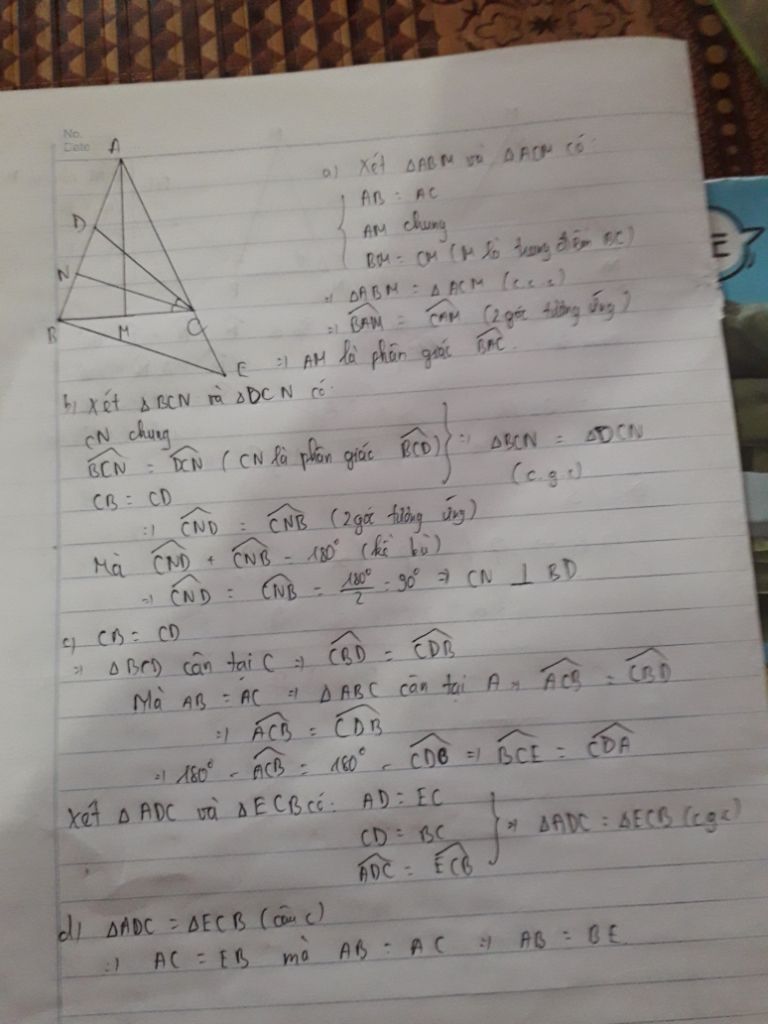 No.
Date
A
D
N
B
M
C
E
a) Xét ΔABM và ΔACM có:
AB = AC
AM chung
BM = CM (M là trung điểm BC)
=> ΔABM = ΔACM (c.c.c)
=> \widehat{BAM} = \widehat{CAM} (2 góc tương ứng)
=> AM là phân giác \widehat{BAC}.
b) Xét ΔBCN và ΔDCN có:
CN chung
\widehat{BCN} = \widehat{DCN} (CN là phân giác \widehat{BCD}) => ΔBCN = ΔDCN
CB = CD (c.g.c)
=> \widehat{CND} = \widehat{CNB} (2 góc tương ứng)
Mà \widehat{CND} + \widehat{CNB} = 180° (kề bù)
=> \widehat{CND} = \widehat{CNB} = \frac{180°}{2} = 90° => CN ⊥ BD
c) CB = CD
=> ΔBCD cân tại C => \widehat{CBD} = \widehat{CDB}
Mà AB = AC => ΔABC cân tại A => \widehat{ACB} = \widehat{CBD}
=> \widehat{ACB} = \widehat{CDB}
=> 180° - \widehat{ACB} = 180° - \widehat{CDB} => \widehat{BCE} = \widehat{CDA}
Xét ΔADC và ΔECB có: AD = EC
CD = BC => ΔADC = ΔECB (c.g.c)
\widehat{ADC} = \widehat{ECB}
d) ΔADC = ΔECB (câu c)
=> AC = EB mà AB = AC => AB = BE
E